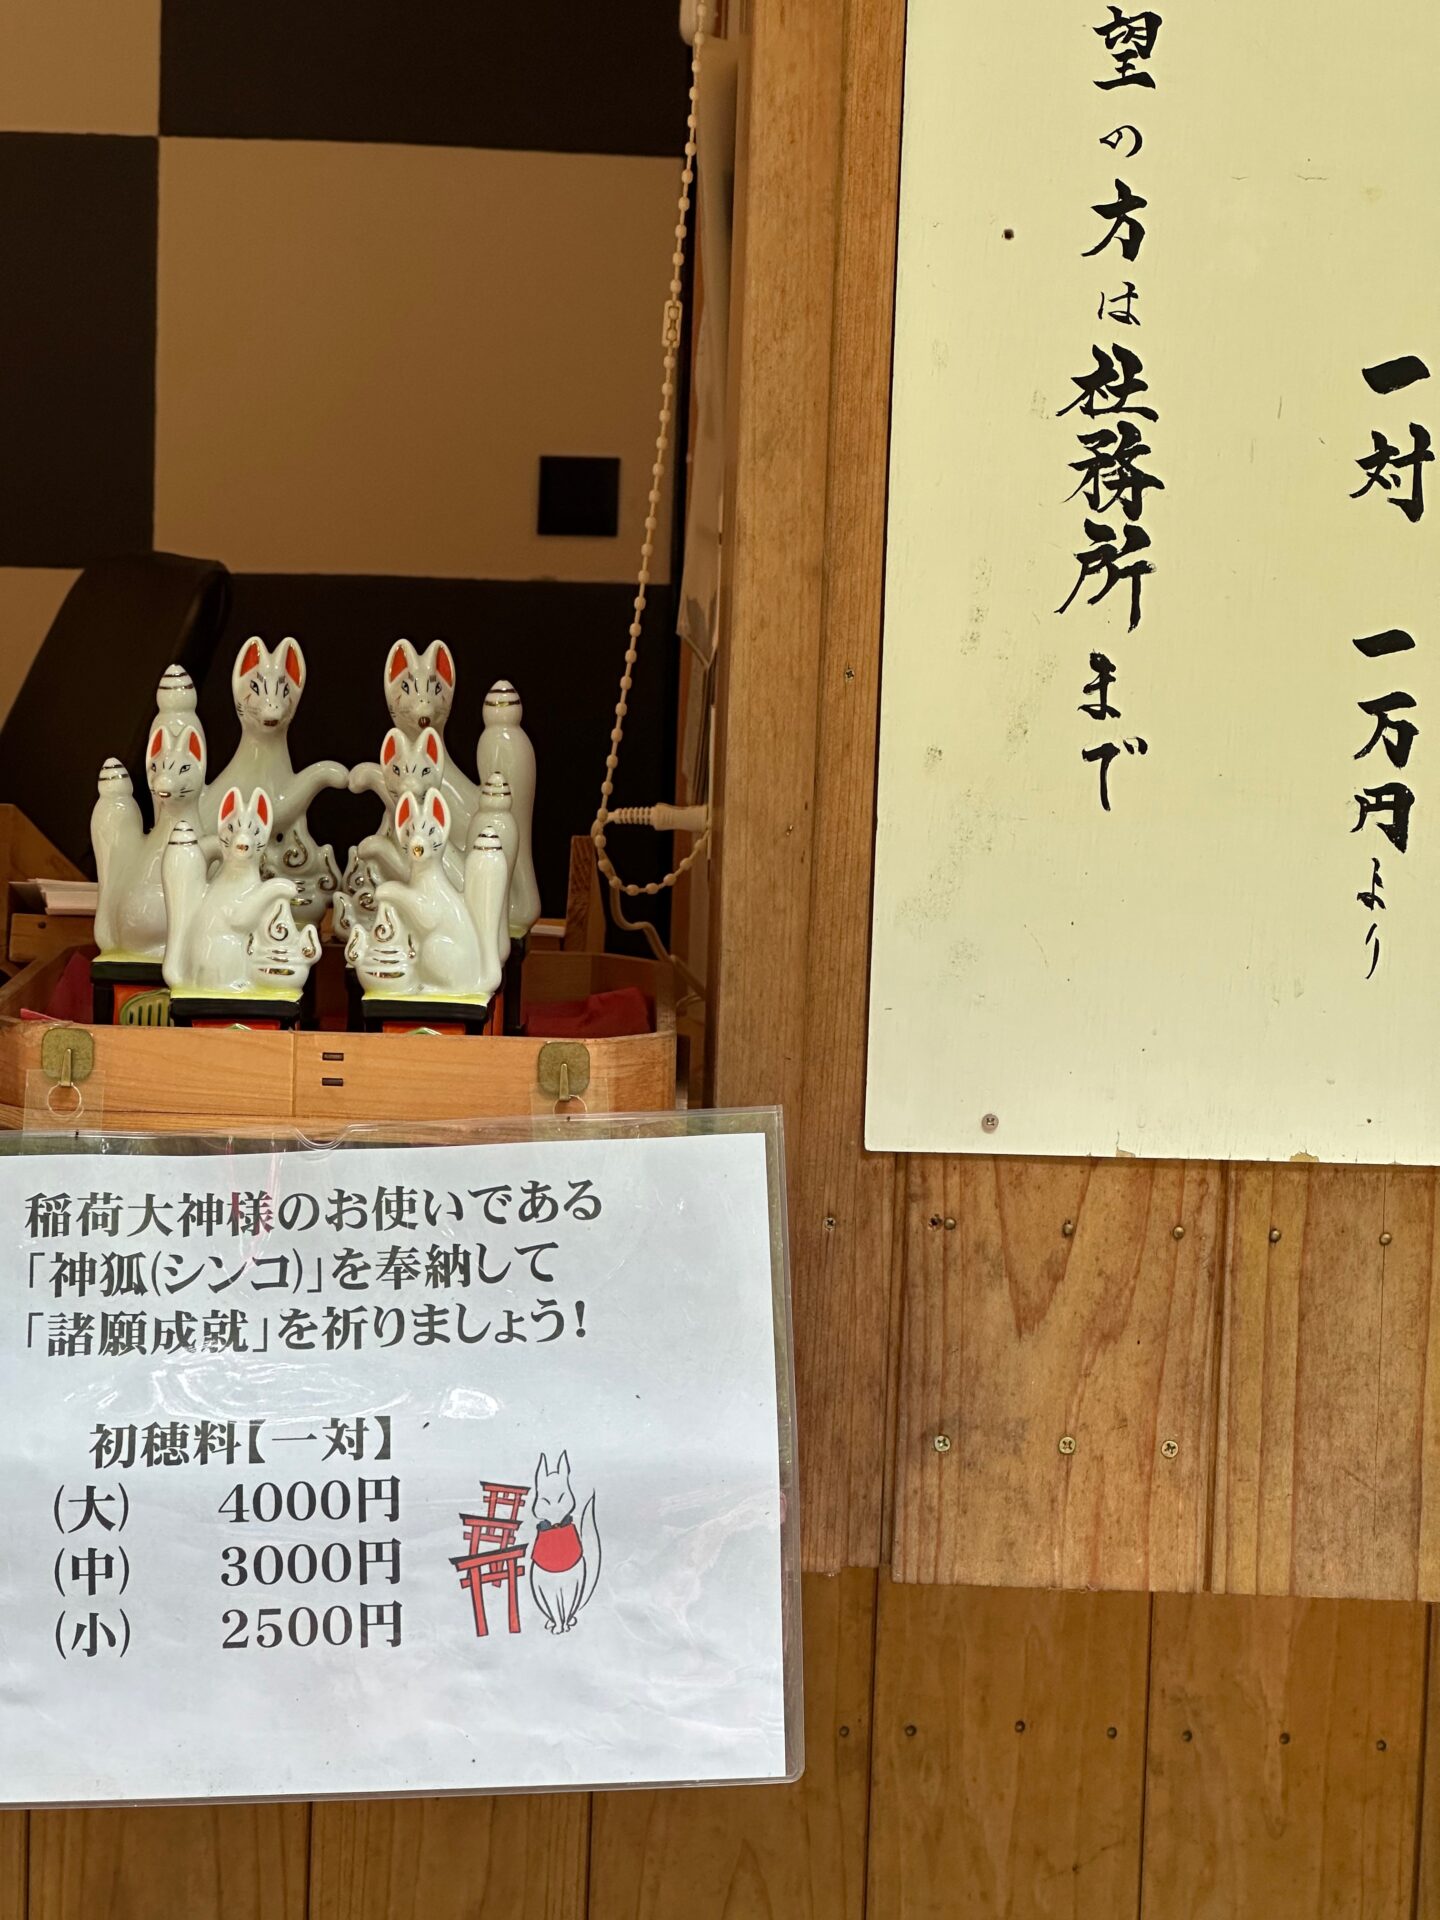 一対 一万円より
望の方は社務所まで
稲荷大神様のお使いである
「神狐(シンコ)」を奉納して
「諸願成就」を祈りましょう!
初穂料【一対】
(大) 4000円
(中) 3000円
(小) 2500円